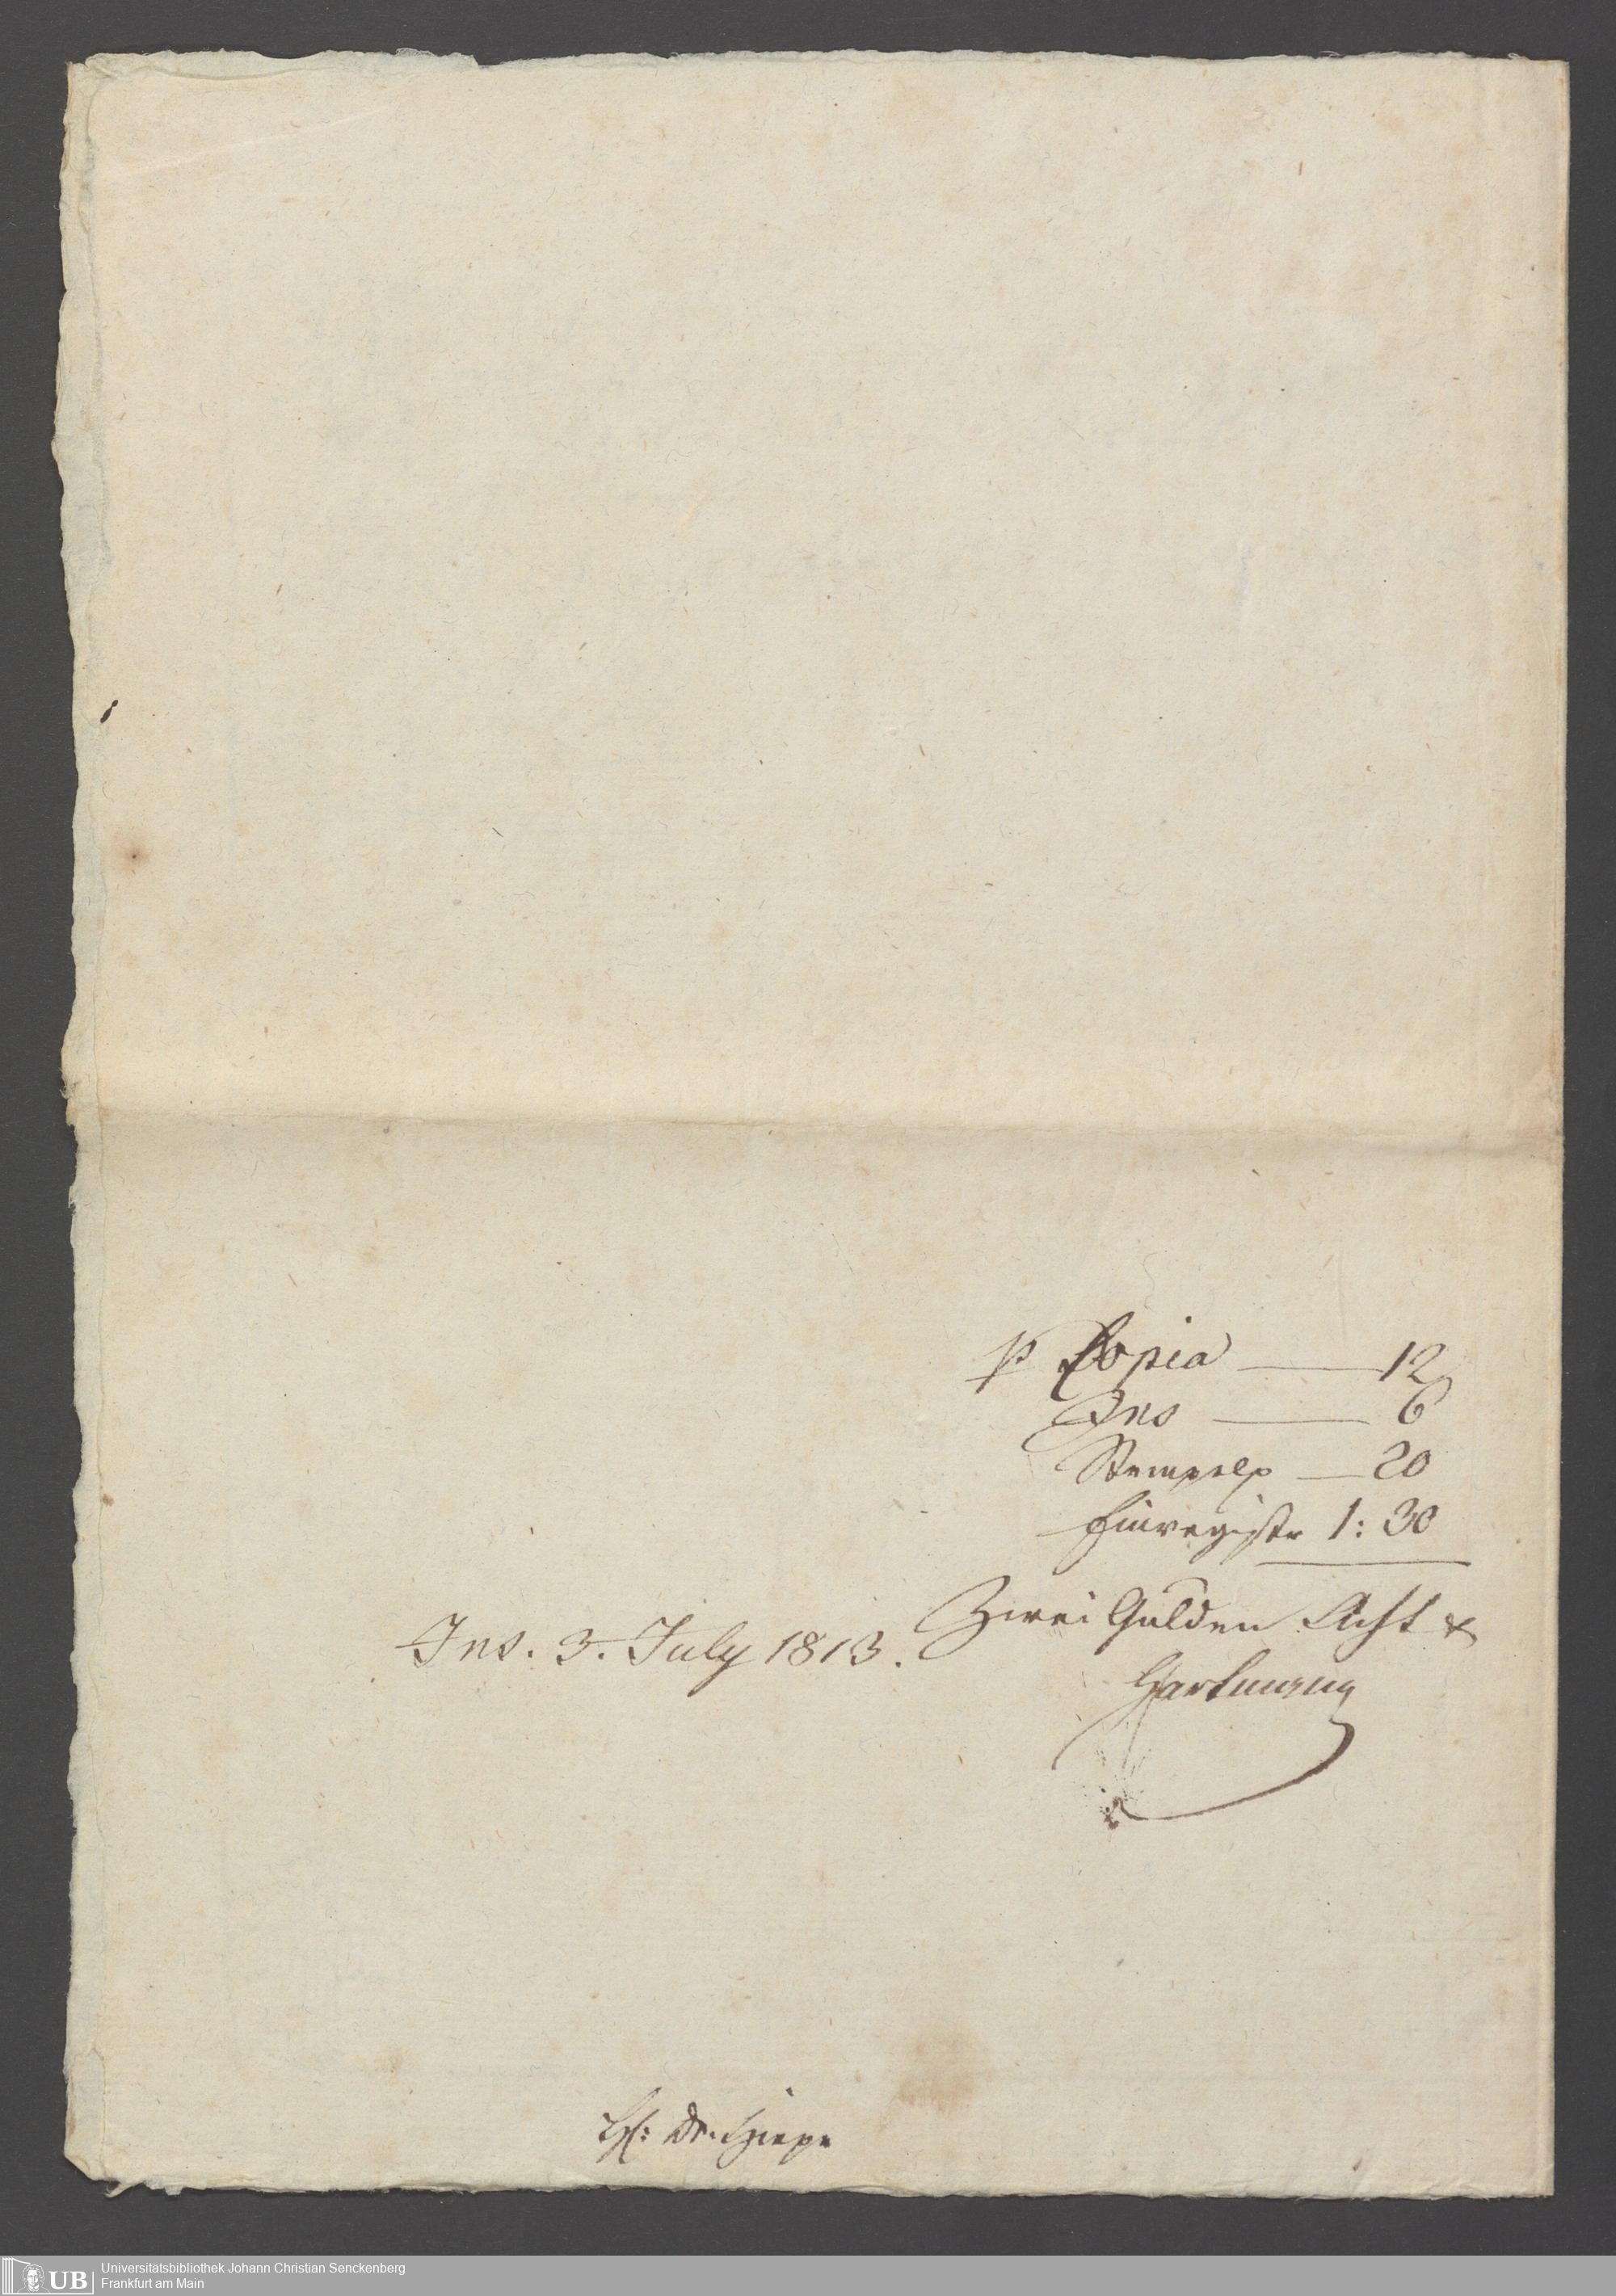 p Copia — 12
Ins — 6
Stempelp — 20
Einregistr 1:30
Zwei Gulden Acht x
Ins. 3. July 1813.
Hartmann
H: Dr.
Universitätsbibliothek Johann Christian Senckenberg
Frankfurt am Main
UB